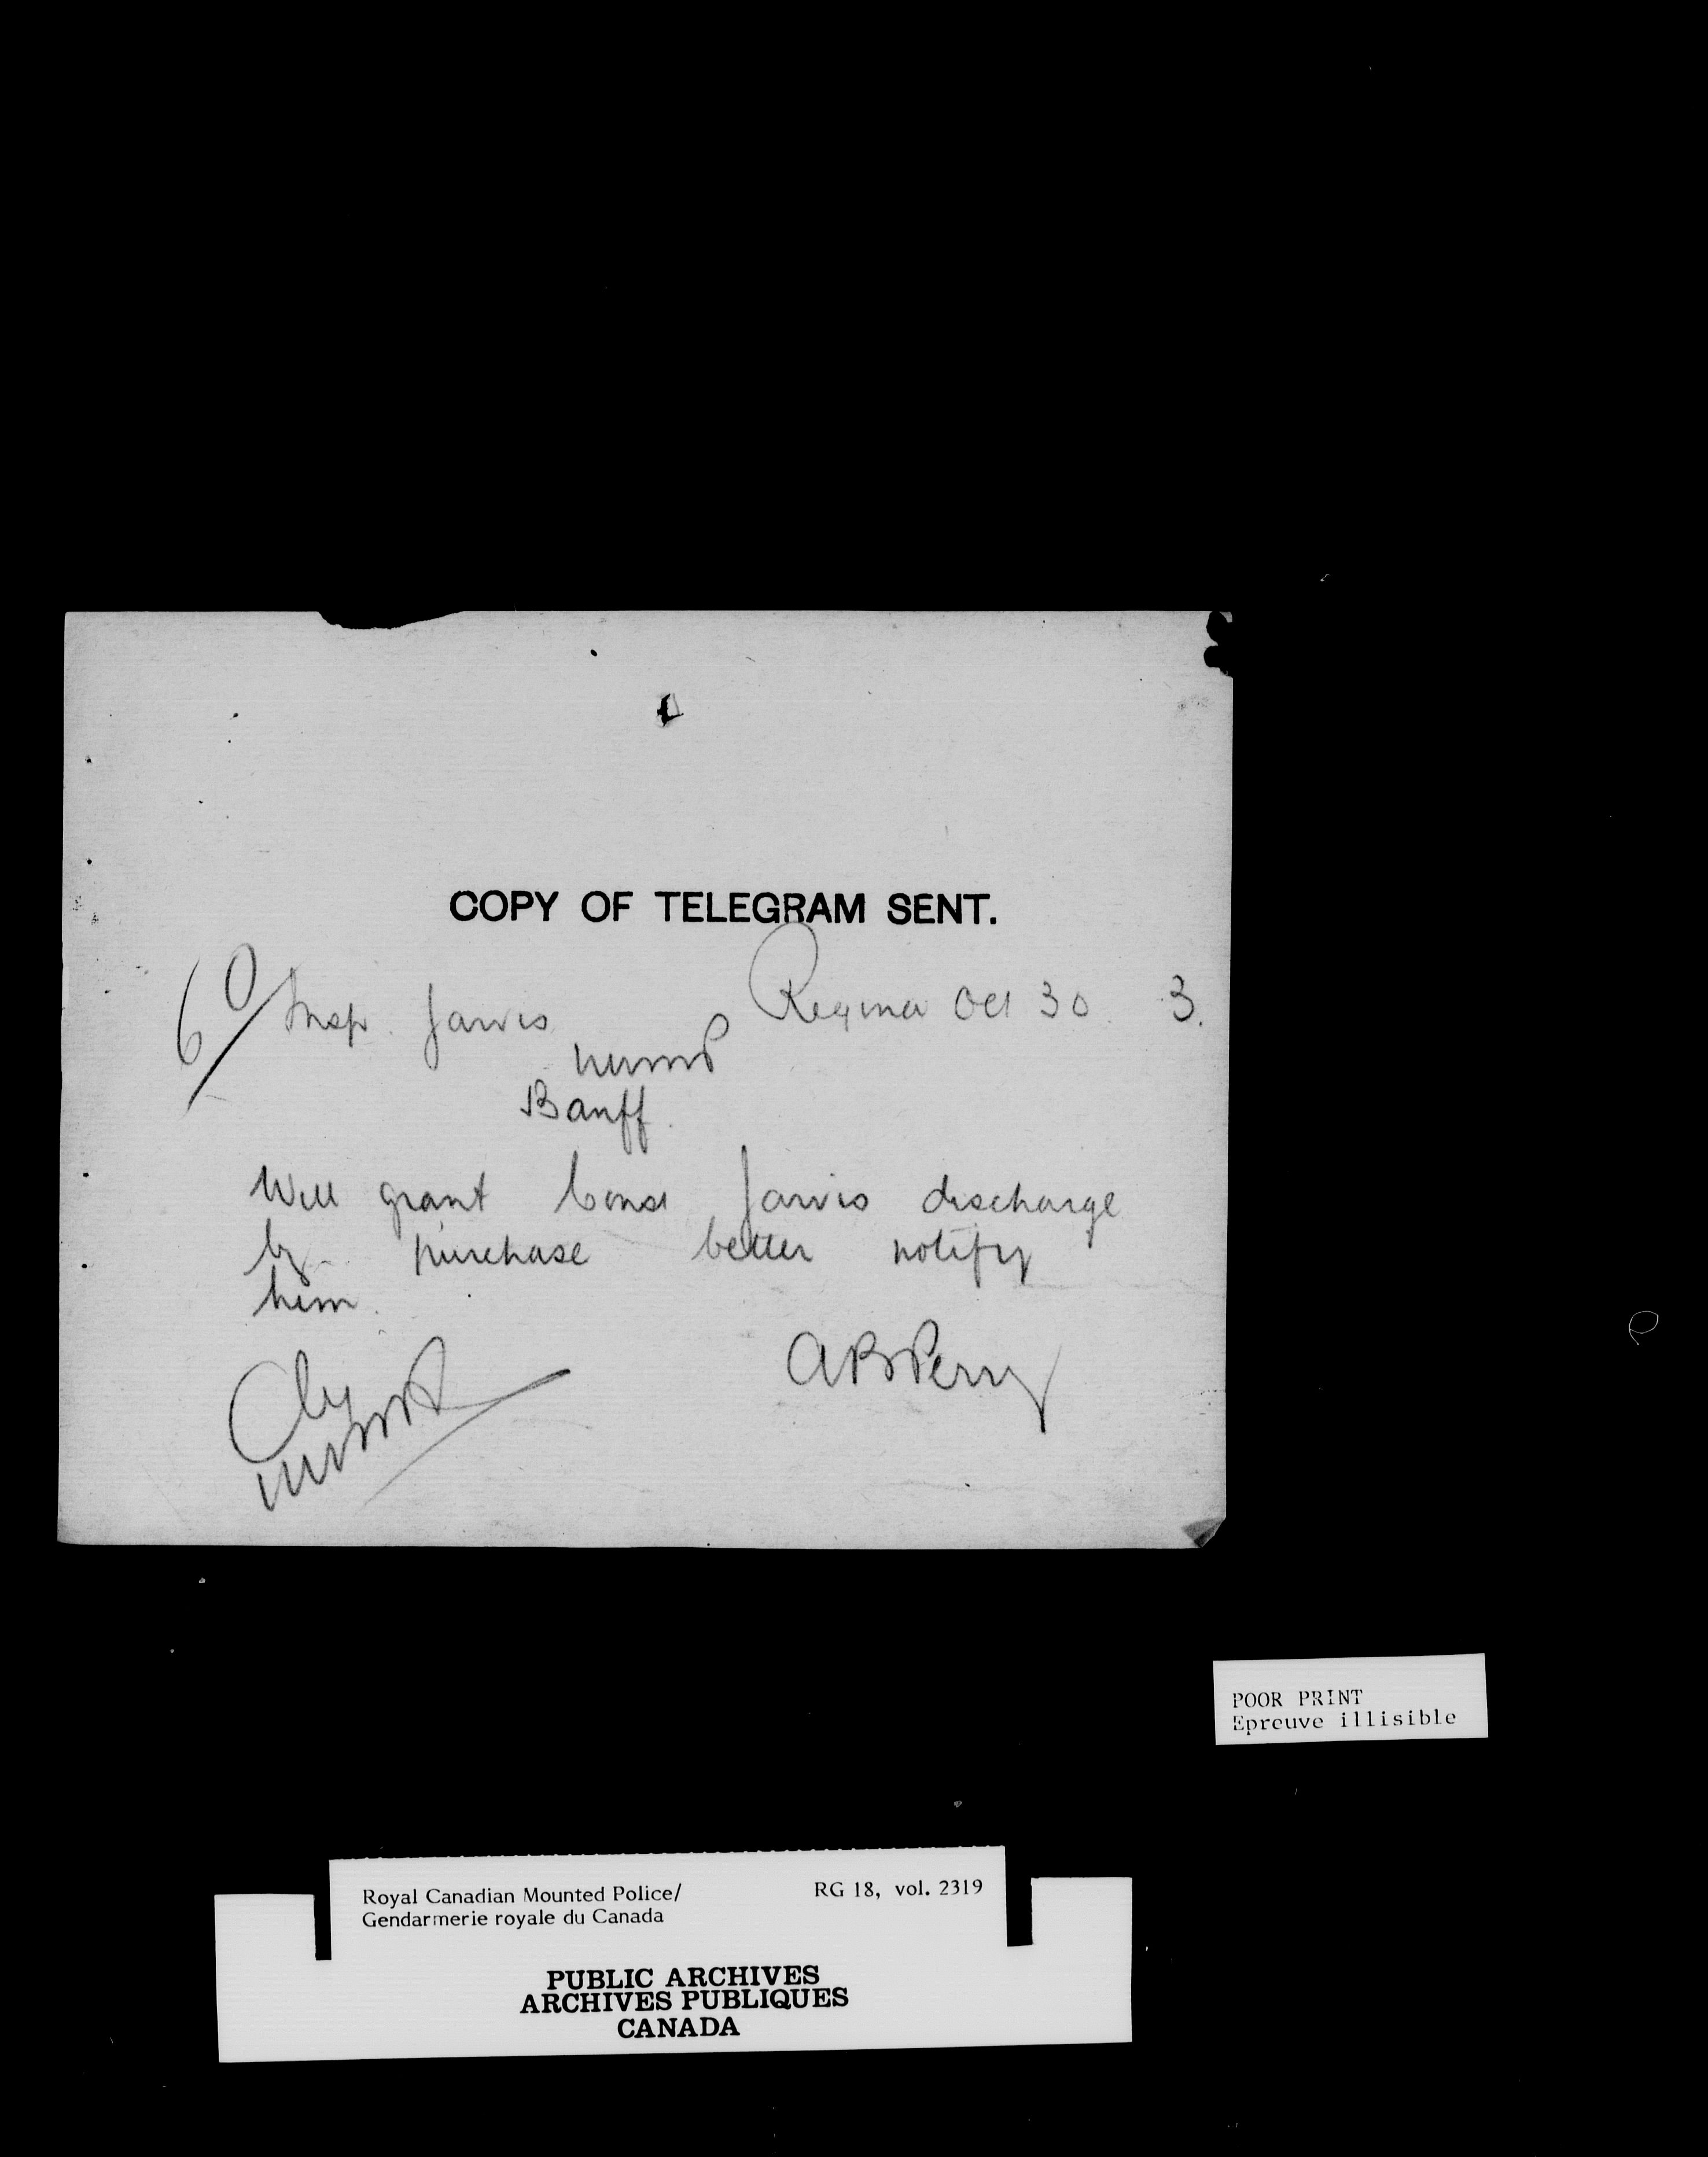 COPY OF TELEGRAM SENT.
60/ Insp. Jarvis Regina Oct 30 3.
NWMP
Banff.
Will grant Const Jarvis discharge
by purchase better notify
him.
ABPerry
NWMP
POOR PRINT
Epreuve illisible
Royal Canadian Mounted Police/ RG 18, vol. 2319
Gendarmerie royale du Canada
PUBLIC ARCHIVES
ARCHIVES PUBLIQUES
CANADA